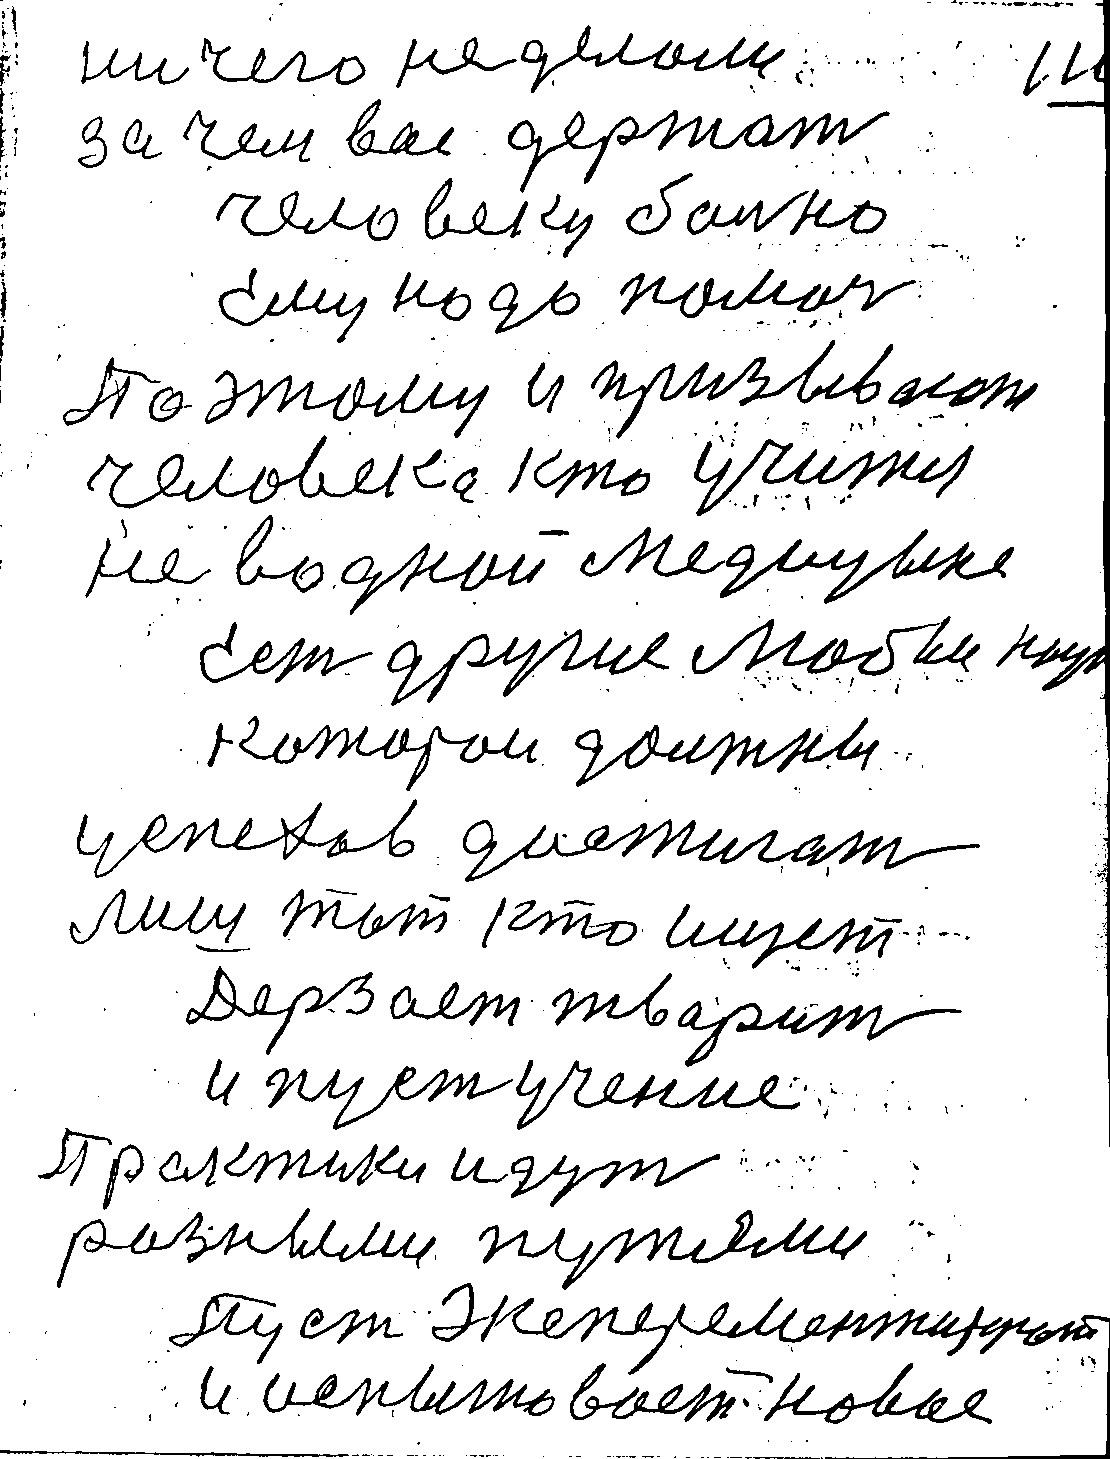 ничего не делали
за чем вас держат
человеку болно
ему нодо помоч
Поэтому и призывают
человека кто учится
не водной
Ест другие
которои должны
успехов достигат
лиш тот кто ищет
Дерзает тварит
и пуст учение
Практики идут
разными путями
Пуст Эксперементируют
и испытовает новое